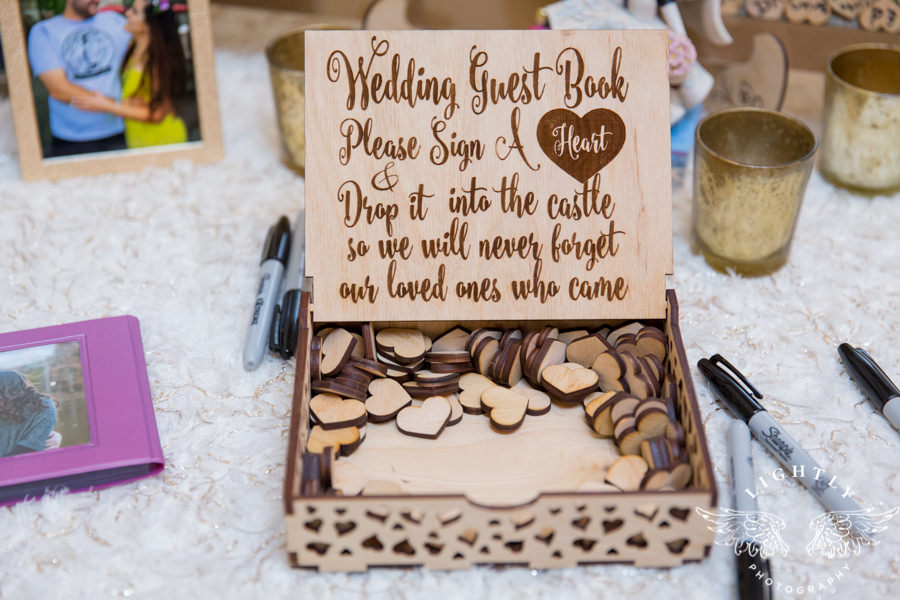 Wedding Guest Book
Please Sign A Heart
&
Drop it into the castle
so we will never forget
our loved ones who came
Sharpie
LIGHTLY
PHOTOGRAPHY